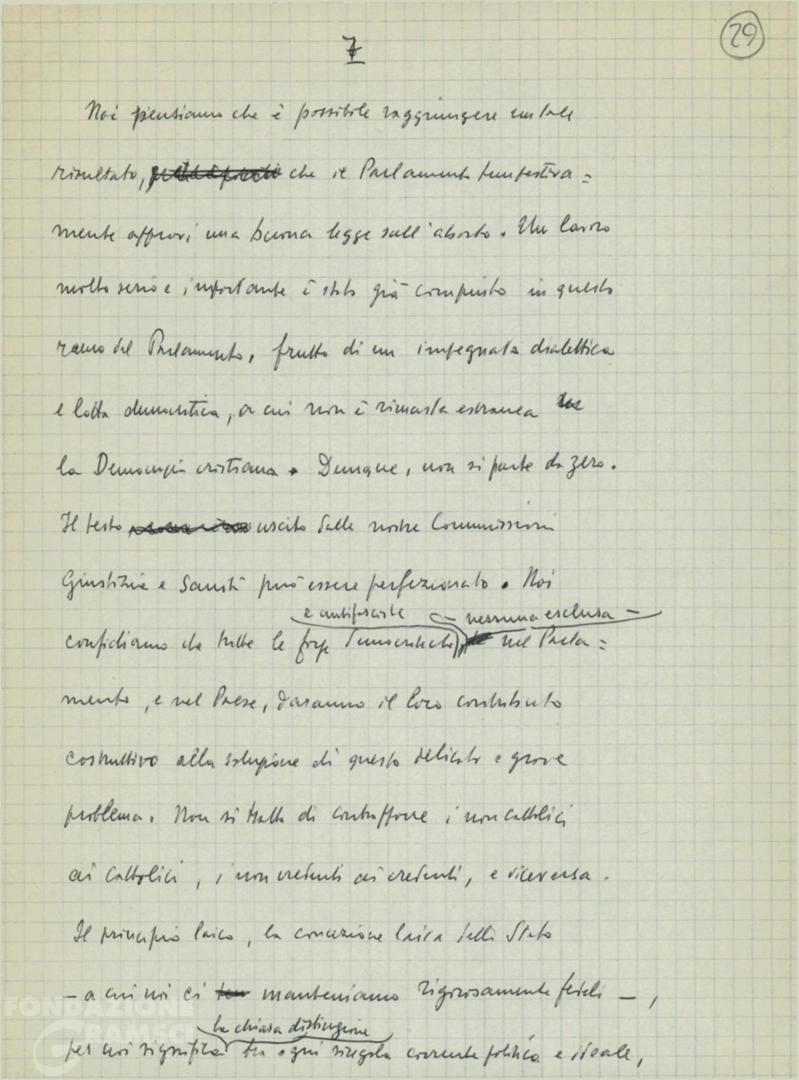 7
29
Noi pensiamo che è possibile raggiungere un tale
risultato, che il Parlamento tempestiva=
mente approvi una buona legge sull'aborto. Un lavoro
molto serio e importante è stato già compiuto in questo
ramo del Parlamento, frutto di un impegnata dialettica
e lotta democratica, a cui non è rimasta estranea
la Democrazia cristiana. Dunque, non si parte da zero.
Il testo uscito dalle nostre Commissioni
Giustizia e Sanità può essere perfezionato. Noi
e antifasciste — nessuna esclusa —
confidiamo che tutte le forze democratiche, nel Parla=
mento, e nel Paese, daranno il loro contributo
costruttivo alla soluzione di questo delicato e grave
problema. Non si tratta di contrapporre i non cattolici
ai cattolici, i non credenti ai credenti, e viceversa.
Il principio laico, la concezione laica dello Stato
— a cui noi ci manteniamo rigorosamente fedeli —,
la chiara distinzione
per noi significa tra ogni singola corrente politica e ideale,
FONDAZIONE
GRAMSCI